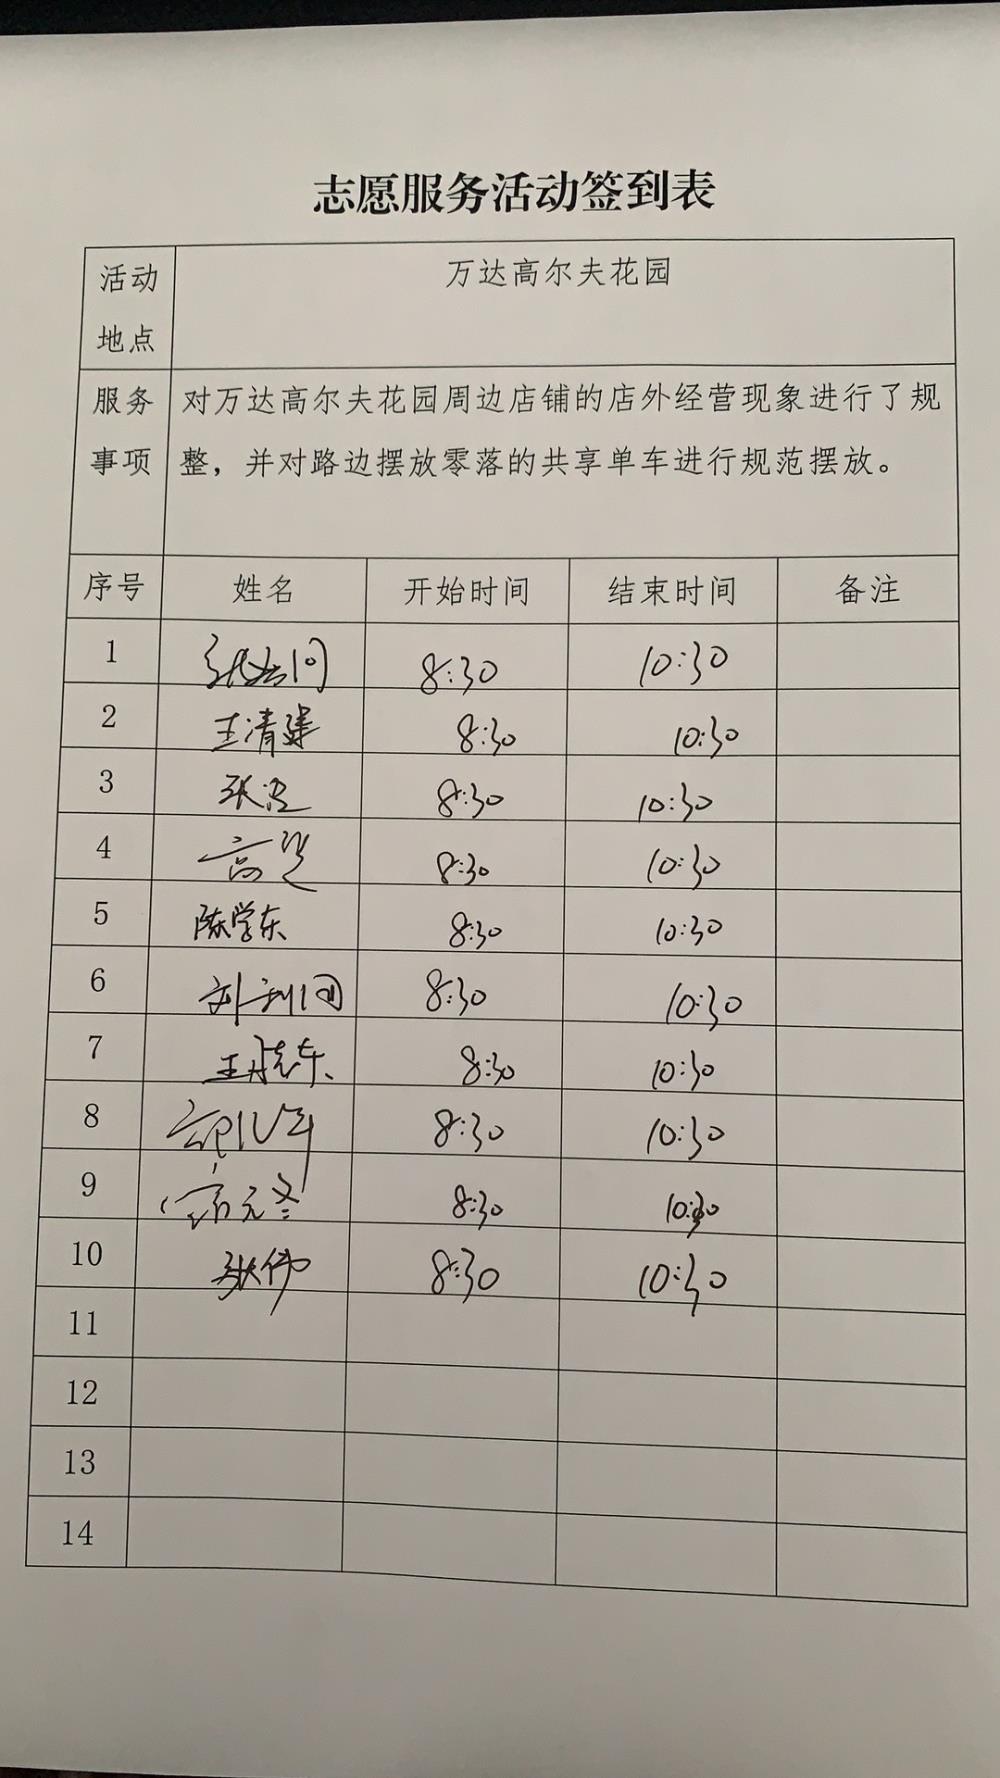 志愿服务活动签到表
活动地点 万达高尔夫花园
服务事项 对万达高尔夫花园周边店铺的店外经营现象进行了规
整，并对路边摆放零落的共享单车进行规范摆放。
序号 姓名 开始时间 结束时间 备注
1 8:30 10:30
2 王清建 8:30 10:30
3 张 8:30 10:30
4 高 8:30 10:30
5 陈学东 8:30 10:30
6 8:30 10:30
7 王 东 8:30 10:30
8 8:30 10:30
9 8:30 10:30
10 张伟 8:30 10:30
11
12
13
14